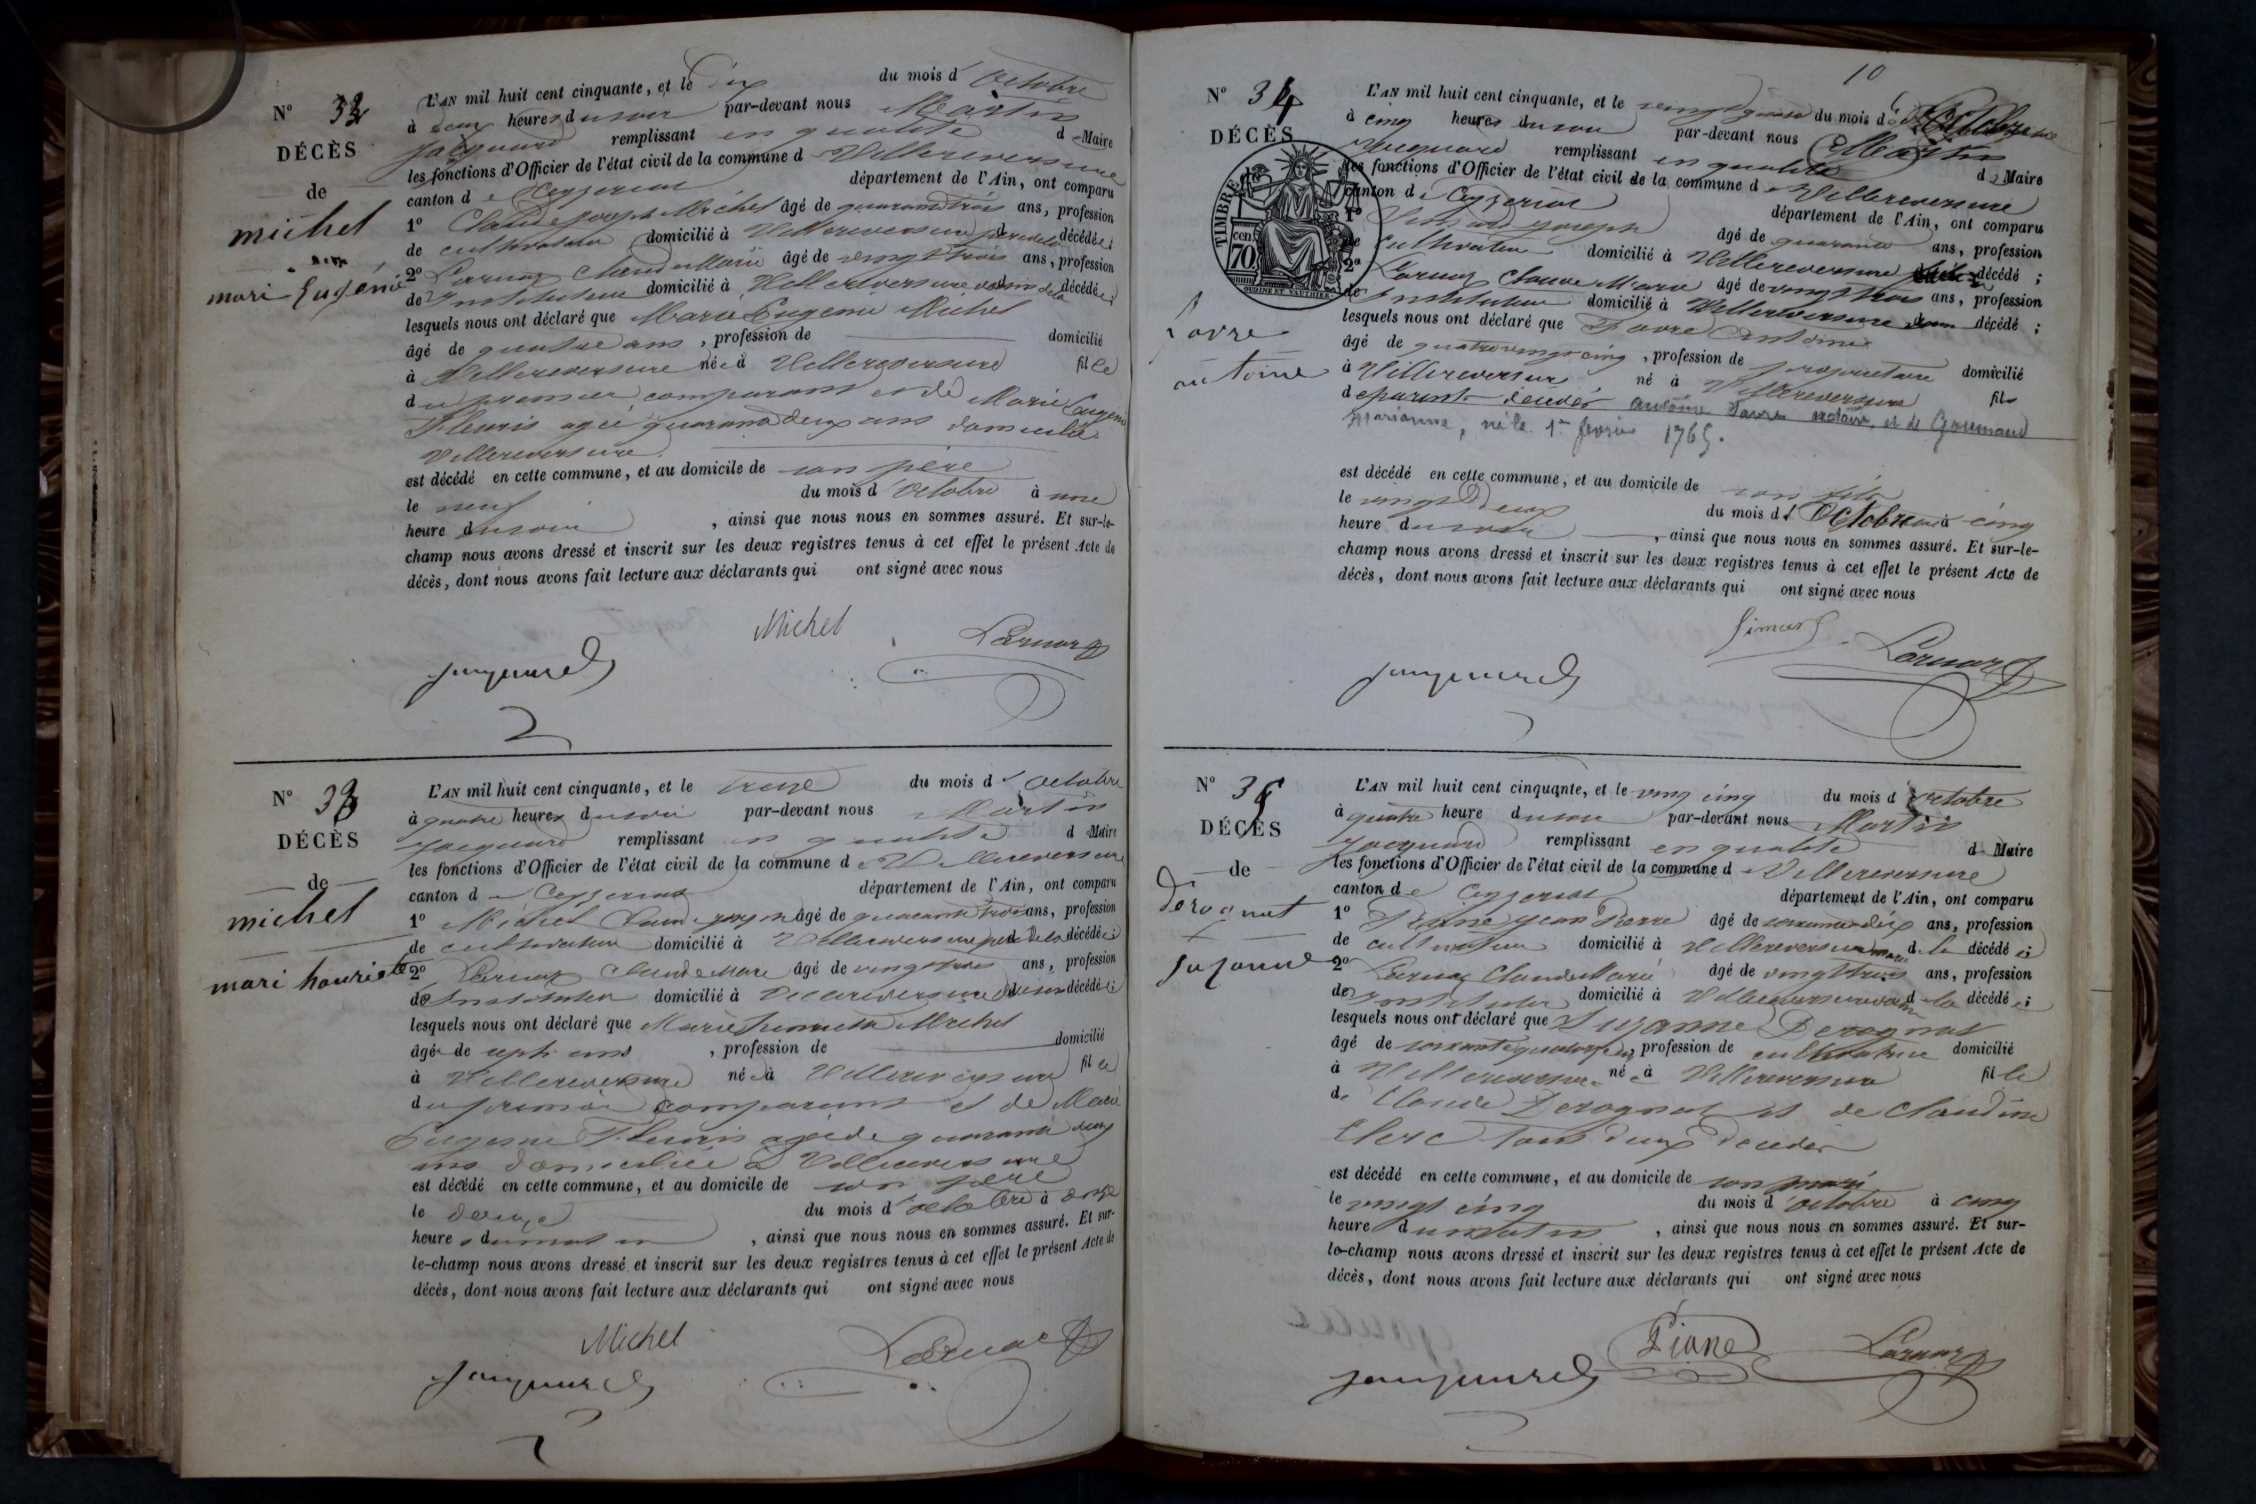 N° 32
DÉCÈS
de
michel
mari Eugénie
L'AN mil huit cent cinquante, et le Dix du mois d'Octobre
à deux heures du soir par-devant nous Martin
Jacquard remplissant en qualité de Maire
les fonctions d'Officier de l'état civil de la commune de Villereversure
canton de Ceyzeriat département de l'Ain, ont comparu
1° Claude Joseph Michel âgé de quarante trois ans, profession
de cultivateur domicilié à Villereversure père de la décédée ;
2° Larnaz Claude Marie âgé de vingt trois ans, profession
de Instituteur domicilié à Villereversure voisin de la décédée ;
lesquels nous ont déclaré que Marie Eugénie Michel
âgé de quatre ans, profession de domicilié
à Villereversure née à Villereversure fille
du premier comparant et de Marie Eugénie
Fleuris agée quarante deux ans domiciliée
Villereversure
est décédé en cette commune, et au domicile de son père
le neuf du mois d'Octobre à une
heure du soir, ainsi que nous nous en sommes assuré. Et sur-le-
champ nous avons dressé et inscrit sur les deux registres tenus à cet effet le présent Acte de
décès, dont nous avons fait lecture aux déclarants qui ont signé avec nous
Michel
Larnaz
Jacquard
N° 33
DÉCÈS
de
michel
mari hauriete
L'AN mil huit cent cinquante, et le treize du mois d'octobre
à quatre heures du soir par-devant nous Martin
Jacquard remplissant en qualité d Maire
les fonctions d'Officier de l'état civil de la commune de Villereversure
canton de Ceyzeriat département de l'Ain, ont comparu
1° Michel Claude Joseph âgé de quarante trois ans, profession
de cultivateur domicilié à Villereversure père de la décédée ;
2° Larnaz Claude Marie âgé de vingt trois ans, profession
de Instituteur domicilié à Villereversure décédée ;
lesquels nous ont déclaré que Marie henriette Michel
âgée de sept ans, profession de domicilié
à Villereversure née à Villereversure fille
du premier comparant et de Marie
Eugenie Fleuris agée de quarante deux
ans domiciliée à Villereversure
est décédé en cette commune, et au domicile de son père
le douze du mois d'octobre à onze
heures du matin, ainsi que nous nous en sommes assuré. Et sur-
le-champ nous avons dressé et inscrit sur les deux registres tenus à cet effet le présent Acte de
décès, dont nous avons fait lecture aux déclarants qui ont signé avec nous
Michel
Larnaz
Jacquard
10
N° 34
DÉCÈS
TIMBRE
cen
70
OUDINE ET VAUTHIER
favre
antoine
L'AN mil huit cent cinquante, et le du mois d'Octobre
à cinq heures du soir par-devant nous Martin
Jacquard remplissant en qualité de Maire
les fonctions d'Officier de l'état civil de la commune de Villereversure
canton de Ceyzeriat département de l'Ain, ont comparu
1° Joseph âgé de quarante ans, profession
de cultivateur domicilié à Villereversure décédé ;
2° Larnaz Claude Marie âgé de vingt trois ans, profession
de Instituteur domicilié à Villereversure décédé ;
lesquels nous ont déclaré que Favre Antoine
âgé de quatre vingt cinq, profession de propriétaire domicilié
à Villereversure né à Villereversure fils
de parents décédés antoine Favre notaire, et de Goumand
Marianne, né le 1er fevrier 1765.
est décédé en cette commune, et au domicile de son fils
le vingt Deux du mois d'Octobre à cinq
heure du soir, ainsi que nous nous en sommes assuré. Et sur-le-
champ nous avons dressé et inscrit sur les deux registres tenus à cet effet le présent Acte de
décès, dont nous avons fait lecture aux déclarants qui ont signé avec nous
Larnaz
Jacquard
N° 35
DÉCÈS
de
Derognat
suzanne
L'AN mil huit cent cinquante, et le vingt cinq du mois d'octobre
à quatre heure du soir par-devant nous Martin
Jacquard remplissant en qualité d Maire
les fonctions d'Officier de l'état civil de la commune d Villereversure
canton de Ceyzeriat département de l'Ain, ont comparu
1° Jean Pierre âgé de soixante dix ans, profession
de cultivateur domicilié à Villereversure mari de la décédée ;
2° Larnaz Claude Marie âgé de vingt trois ans, profession
de Instituteur domicilié à Villereversure voisin de la décédée ;
lesquels nous ont déclaré que Suzanne Derognat
âgé de soixante quatorze ans, profession de cultivatrice domicilié
à Villereversure née à Villereversure fille
de Claude Derognat et de Claudine
Clerc tous deux décédés
est décédé en cette commune, et au domicile de son mari
le vingt cinq du mois d'octobre à cinq
heure du matin, ainsi que nous nous en sommes assuré. Et sur-
le-champ nous avons dressé et inscrit sur les deux registres tenus à cet effet le présent Acte de
décès, dont nous avons fait lecture aux déclarants qui ont signé avec nous
Piane
Larnaz
Jacquard